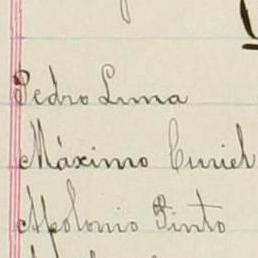 Pedro Luna
Máximo Curiel
Apolonio Pinto